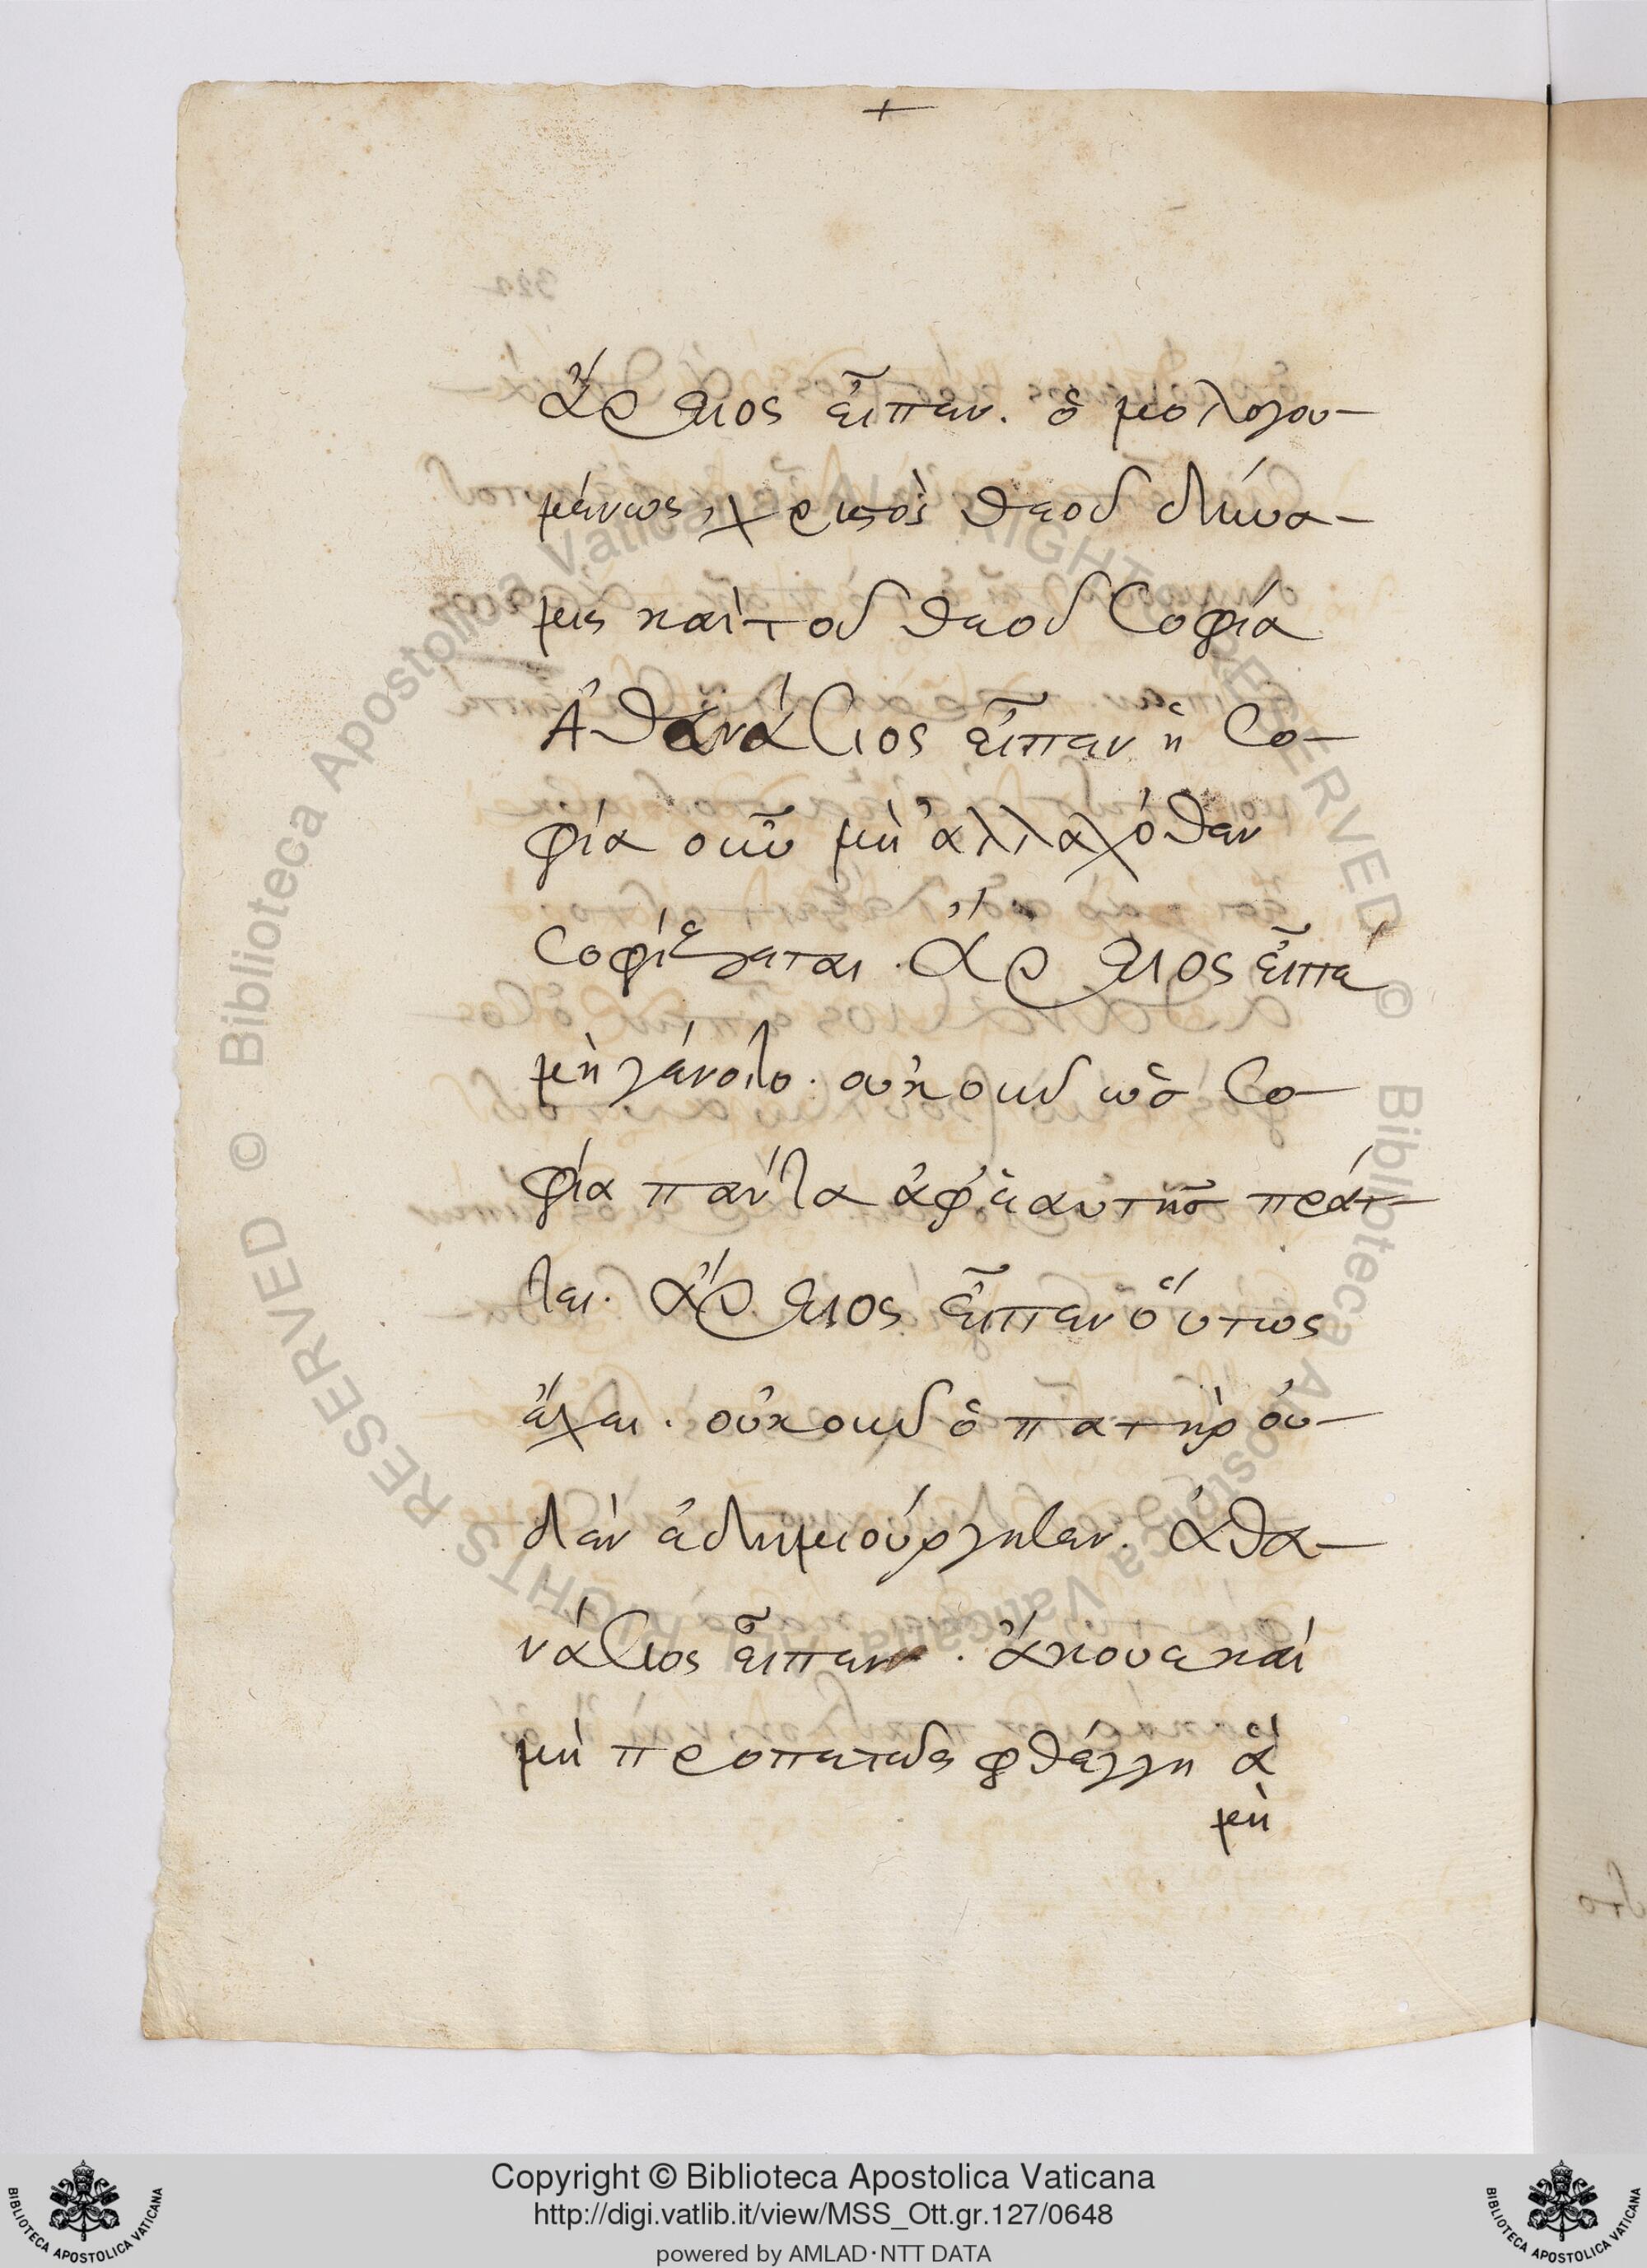 +
ἄρειος εἶπεν. ὁμολογου-
μένως, χριστὸς θεοῦ δύνα-
μις καὶ τοῦ θεοῦ σοφία
Ἀθανάσιος εἶπεν ἡ σο-
φία οὖν μὴ ἀλλαχόθεν
σοφίζεται. ἄρειος εἶπε
μὴ γένοιτο. οὐκοῦν ὡς σο-
φία πάντα ἀφ' ἑαυτῆς πράτ-
τει. ἄρειος εἶπεν οὕτως
ἔχει. οὐκοῦν ὁ πατὴρ οὐ-
δὲν ἐδημιούργησεν. ἀθα-
νάσιος εἶπεν. ἄκουε καὶ
μὴ προπετῶς φθέγγη ἃ
μὴ
Copyright © Biblioteca Apostolica Vaticana
http://digi.vatlib.it/view/MSS_Ott.gr.127/0648
powered by AMLAD·NTT DATA
BIBLIOTECA APOSTOLICA VATICANA
BIBLIOTECA APOSTOLICA VATICANA
© Biblioteca Apostolica Vaticana ALL RIGHTS RESERVED © Biblioteca Apostolica Vaticana ALL RIGHTS RESERVED